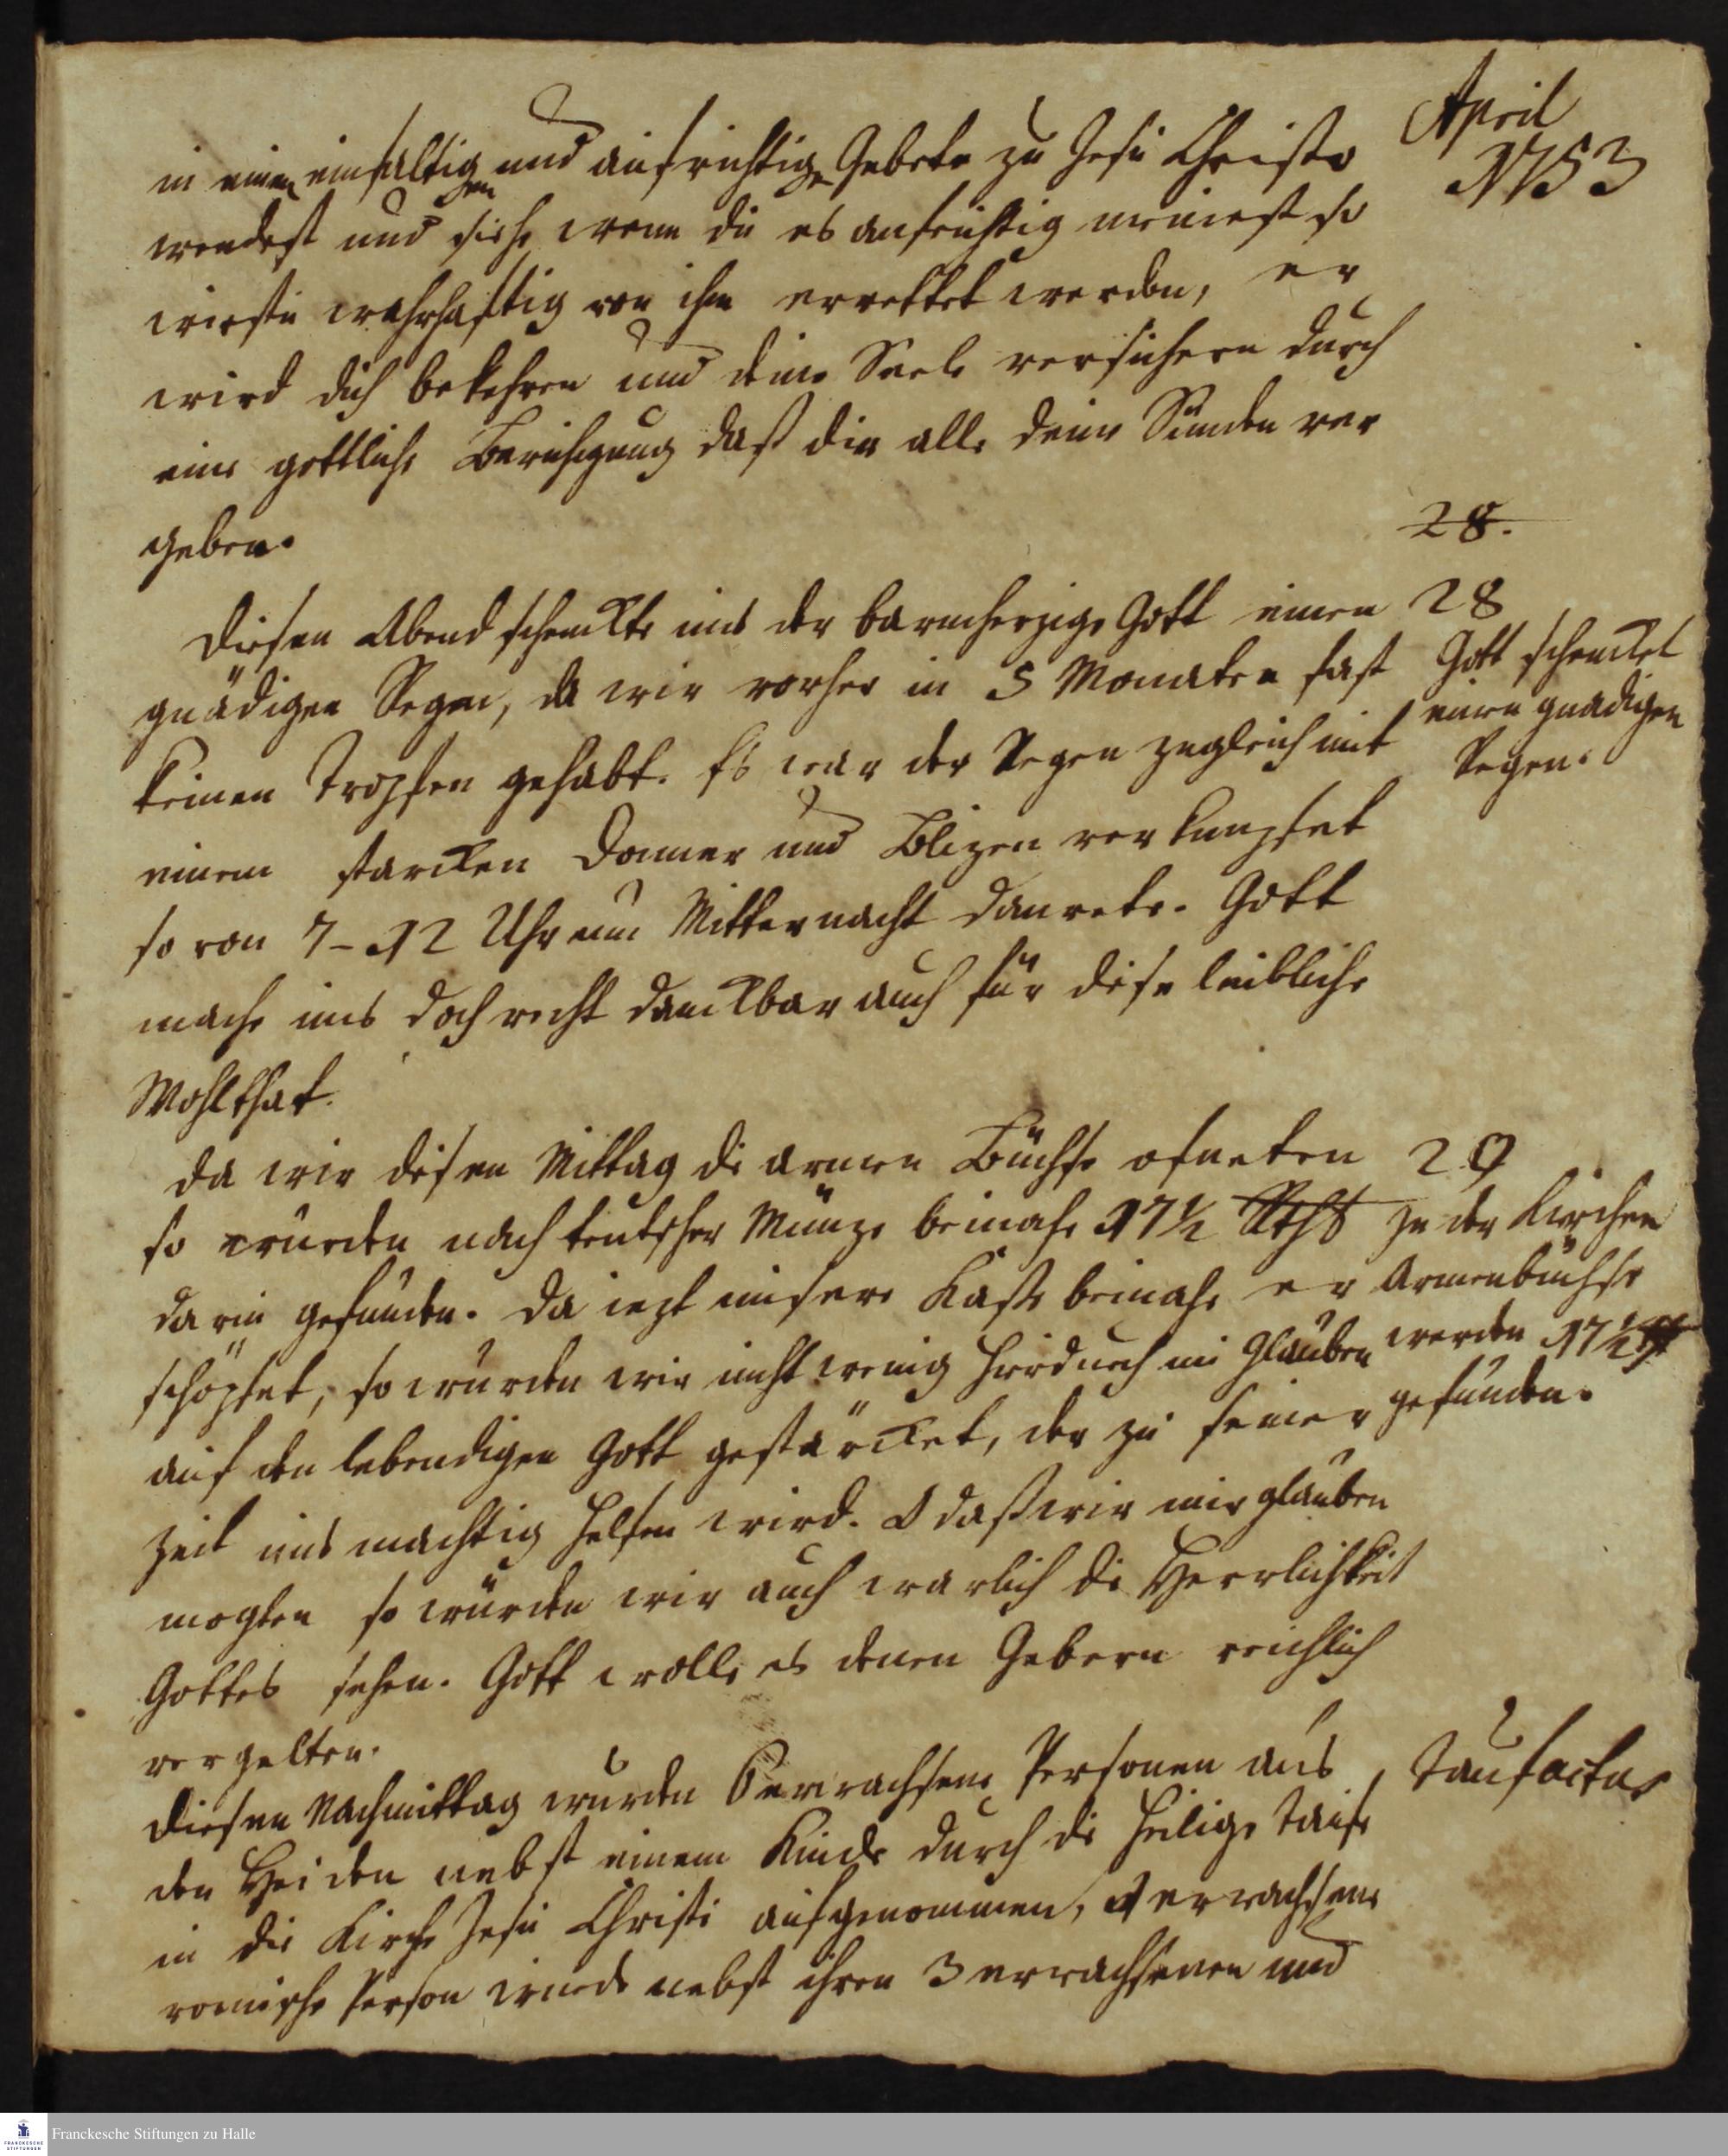 April
1753
in einen einfaltigen und aufrichtigen Gebete zu Jesu Christo
wendest und siehe wenn du es aufrichtig meinest so
wirstu wahrhafftig von ihm errettet werden, er
wird dich bekehren und deine Seele versichern durch
eine gottliche Beruhigung daß dir alle deine Sünden ver
geben.
28.
Diesen Abend schenckte uns der barmherzige Gott einen
gnädigen Regen, da wir vorher in 5 Monaten fast
keinen Tropfen gehabt. Es war der Regen zugleich mit
einem starcken Donner und Blizen verknupfet
so von 7-12 Uhr um Mitternacht daurete. Gott
mache uns doch recht danckbar auch für diese leibliche
Wohlthat.
28
Gott schencket
einen gnadigen
Regen.
Da wir disen Mittag die armen Büchse ofneten
so wurden nach teutscher Münze beinahe 17½ Rthl
darin gefunden. Da iezt unsere Kasse beinahe er
schöpfet, so wurden wir nicht wenig hirdurch im Glauben
auf den lebendigen Gott gestärcket, der zu seiner
Zeit uns machtig helfen wird. O daß wir nur glauben
mogten so würden wir auch warlich die Herrlichkeit
Gottes sehen. Gott wolle es denen Gebern reichlich
vergelten.
29
In der Kirchen
Armenbüchse
werden 17½ rth
gefunden.
Diesen Nachmittag wurden 6 erwachsene Personen aus
den Heiden nebst einem Kinde durch die heilige Taufe
in die Kirche Jesu Christi aufgenommen, 1 erwachsene
romische Person wurde nebst ihren 3 erwachsenen und
Taufactus